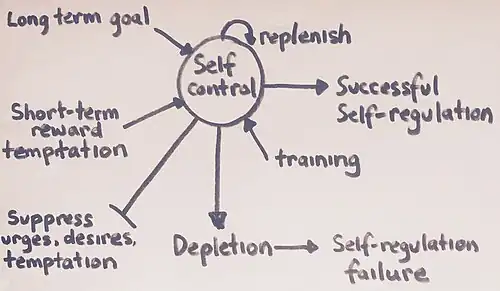 Long term goal
replenish
Self
control
Successful
Self-regulation
Short-term
reward
temptation
training
Suppress
urges, desires,
temptation
Depletion
Self-regulation
failure